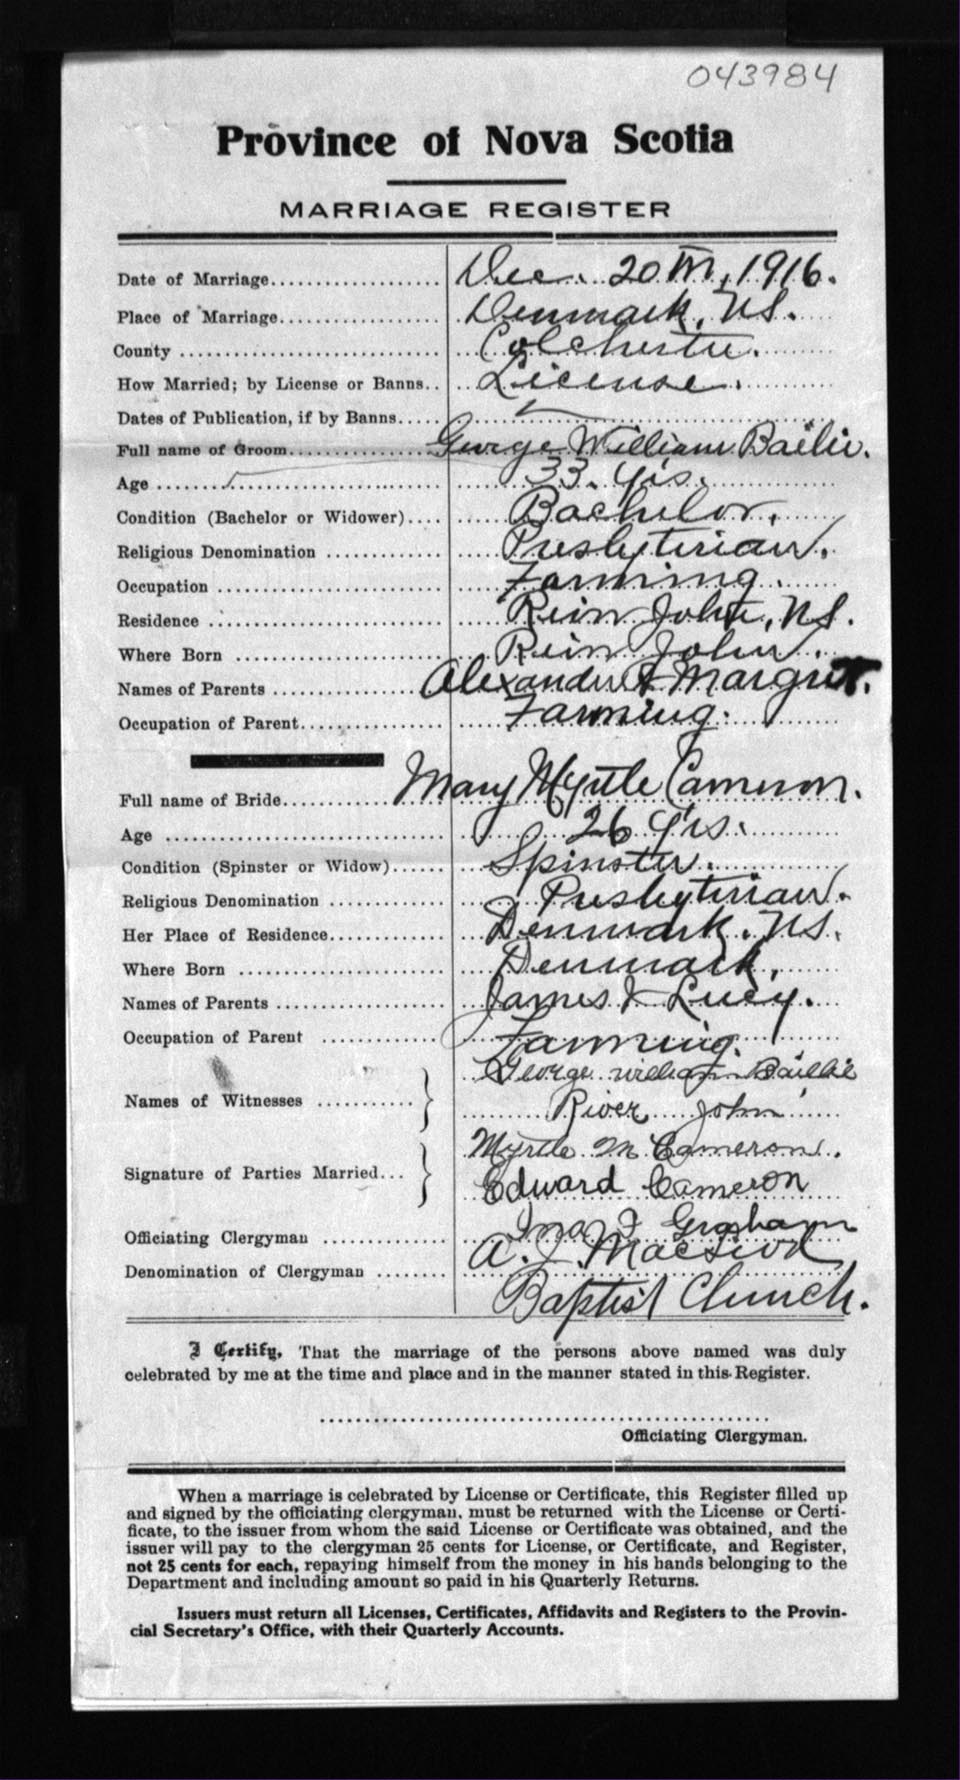 043984
Province of Nova Scotia
MARRIAGE REGISTER
Date of Marriage.................... Dec. 20th, 1916.
Place of Marriage................... Denmark, N.S.
County ................................ Colchester.
How Married; by License or Banns.. License.
Dates of Publication, if by Banns.....
Full name of Groom................. George William Bailie.
Age ................................... 33. Yrs.
Condition (Bachelor or Widower).... Bachelor.
Religious Denomination .............. Presbyterian.
Occupation ........................... Farming.
Residence ............................ River John, N.S.
Where Born .......................... River John.
Names of Parents .................... Alexander & Margret.
Occupation of Parent................. Farming.
Full name of Bride................... Mary Myrtle Cameron.
Age ................................... 26 Yrs.
Condition (Spinster or Widow)...... Spinster.
Religious Denomination .............. Presbyterian.
Her Place of Residence............... Denmark. N.S.
Where Born .......................... Denmark.
Names of Parents .................... James & Lucy.
Occupation of Parent ................ Farming.
George William Baillie
Names of Witnesses ............ } River John
Myrtle M Cameron.
Signature of Parties Married... } Edward Cameron
Graham
Officiating Clergyman ............... A. J. MacLeod
Denomination of Clergyman ........ Baptist Church.
I Certify, That the marriage of the persons above named was duly
celebrated by me at the time and place and in the manner stated in this Register.
..................................................
Officiating Clergyman.
When a marriage is celebrated by License or Certificate, this Register filled up
and signed by the officiating clergyman, must be returned with the License or Certi-
ficate, to the issuer from whom the said License or Certificate was obtained, and the
issuer will pay to the clergyman 25 cents for License, or Certificate, and Register,
not 25 cents for each, repaying himself from the money in his hands belonging to the
Department and including amount so paid in his Quarterly Returns.
Issuers must return all Licenses, Certificates, Affidavits and Registers to the Provin-
cial Secretary's Office, with their Quarterly Accounts.